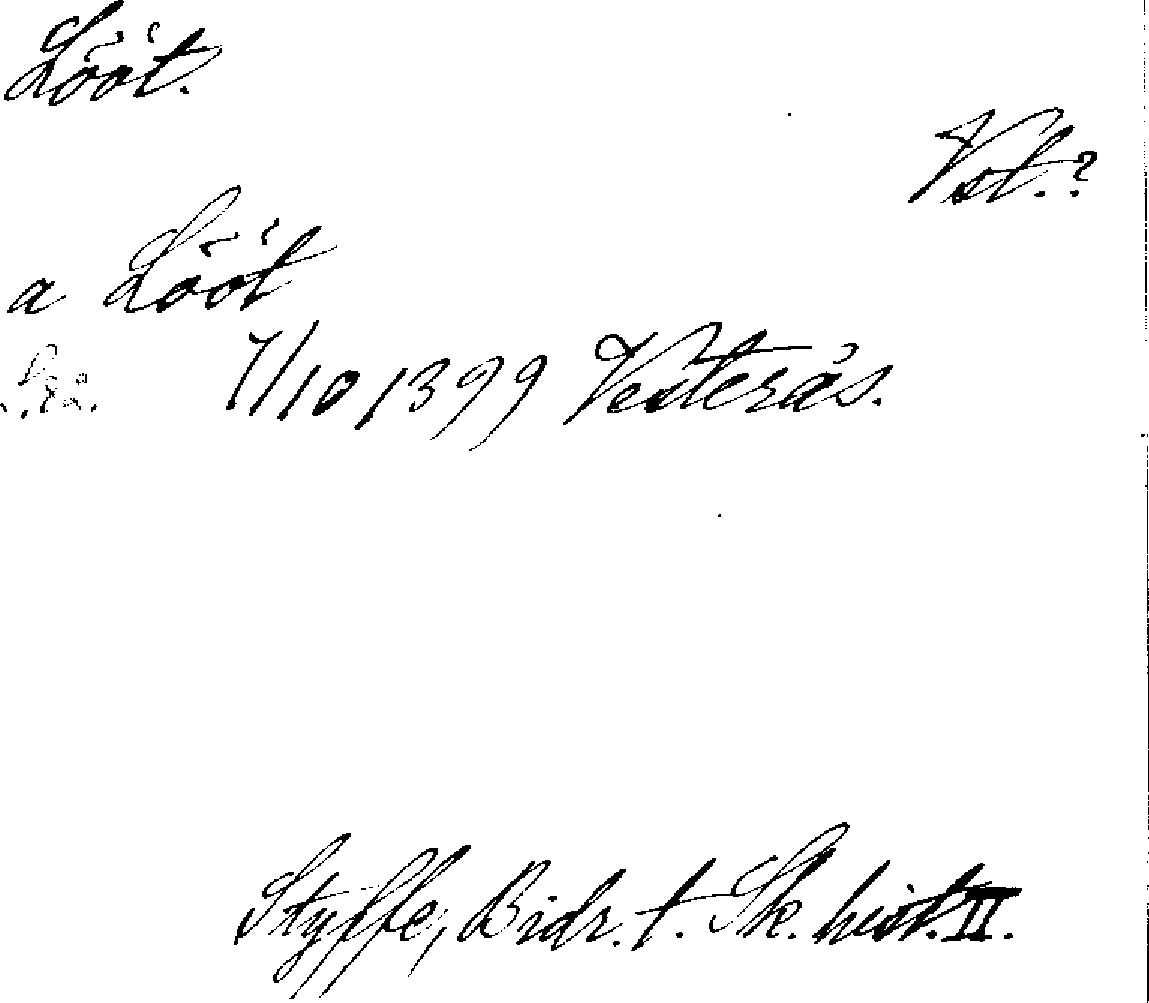 Lööt.
Vst.?
a Lööt
7/10 1399 Vesterås.
Styffe, Bidr. t. Sk. hist. II.